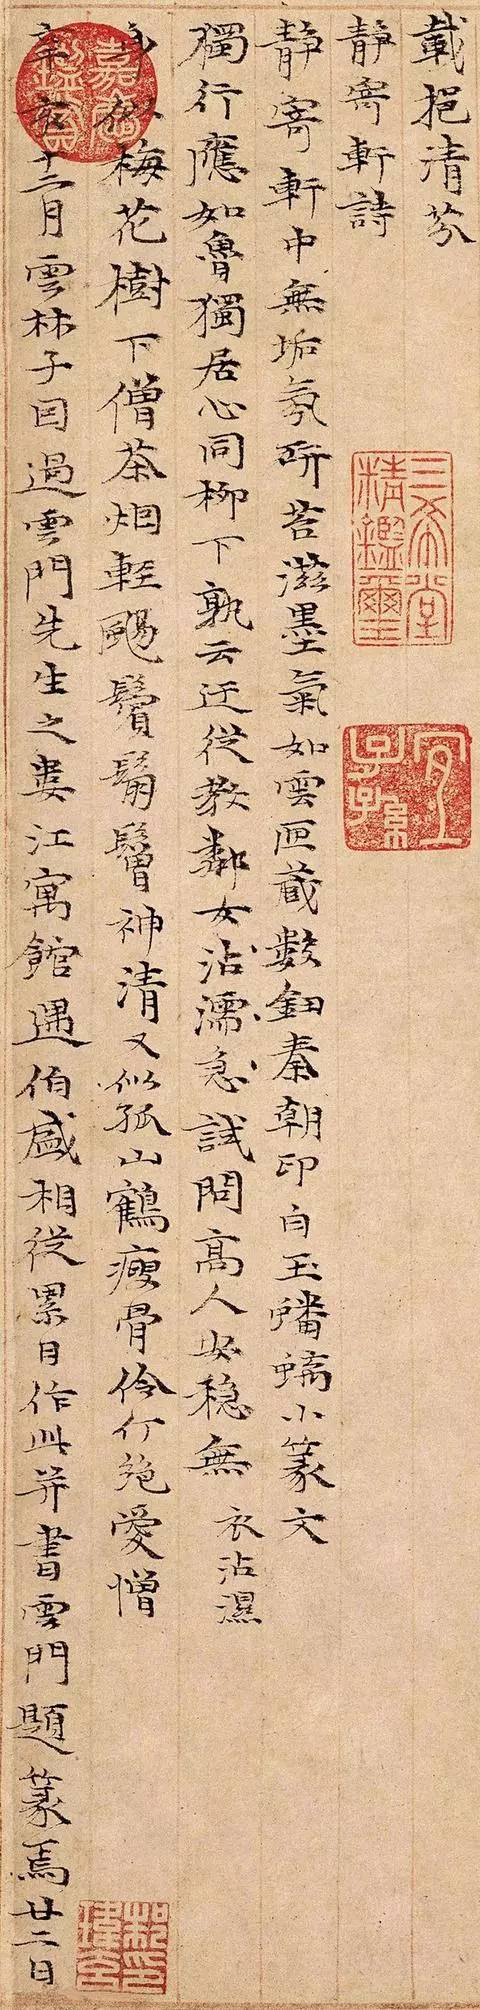 載挹清芬
静寄軒詩
静寄軒中無垢氛研苔滋墨氣如雲匣藏數鈕秦朝印白玉蟠螭小篆文
獨行應如魯獨居心同柳下孰云迂從教鄰女沾濡急試問高人安穩無 衣沾濕
身似梅花樹下僧茶烟輕颺鬢鬅鬙神清又似孤山鶴瘦骨伶仃絶愛憎
辛亥十二月雲林子因過雲門先生之婁江寓館遇伯盛相從累日作此并書雲門題篆焉廿二日
三希堂精鑑璽
宜子孫
嘉慶鑑賞